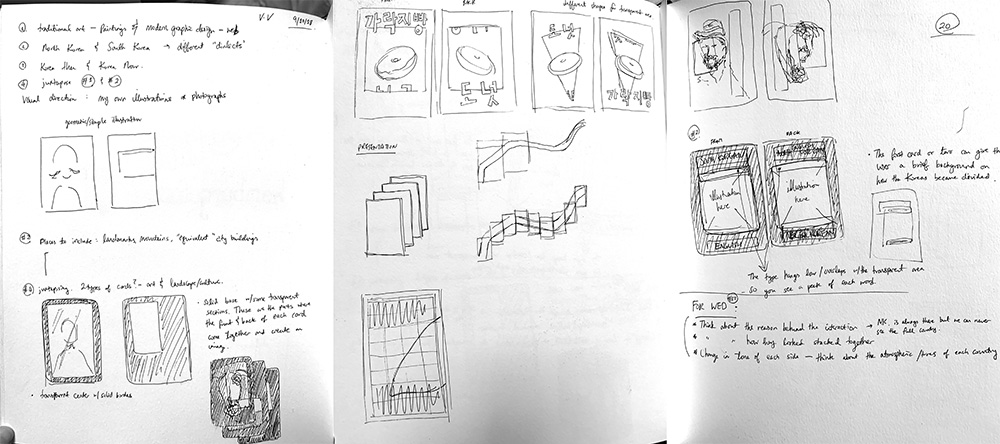 V.V
9/20/23
① traditional art – paintings & modern graphic design – web
② North Korea & South Korea → different "dialects"
③ Korea then & Korea Now.
④ juxtapose #1 & #2
Visual direction : my own illustrations & photographs
geometric/simple illustration
#2 Places to include : landmarks mountains, "equivalent" city buildings
juxtaposing. 2 types of cards? – art & landscape/culture.
• solid base w/some transparent
sections. These are the parts where
the front & back of each card
come together and create an
image.
• transparent center w/solid border
BACK
different shapes for transparent area
가락지빵
도넛
가락지빵
PRESENTATION
20
#2
FRONT
BACK
SOUTH KOREAN
illustration
here
ENGLISH
illustration
here
NORTH KOREAN
• The first card or two can give the
user a brief background on
how the Koreas became divided.
The type hangs low / overlaps w/the transparent area
so you see a peek of each word.
FOR WED :
* Think about the reason behind the interaction → NK is always there but we can never
see the full country.
* " " how they looked stacked together
* Change in tone of each side — think about the atmosphere /tones of each country